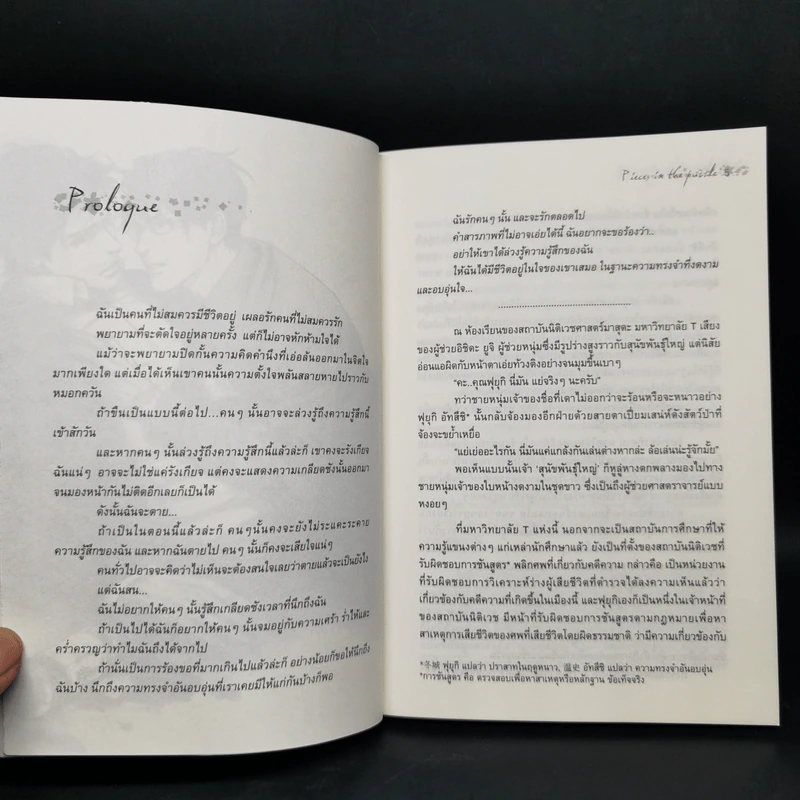 Prologue
ฉันเป็นคนที่ไม่สมควรมีชีวิตอยู่ เผลอรักคนที่ไม่สมควรรัก
พยายามที่จะตัดใจอยู่หลายครั้ง แต่ก็ไม่อาจหักห้ามใจได้
แม้ว่าจะพยายามปิดกั้นความคิดคำนึงที่เอ่อล้นออกมาในจิตใจ
มากเพียงใด แต่เมื่อได้เห็นเขาคนนั้นความตั้งใจพลันสลายหายไปราวกับ
หมอกควัน
ถ้าขืนเป็นแบบนี้ต่อไป...คนๆ นั้นอาจจะล่วงรู้ถึงความรู้สึกนี้
เข้าสักวัน
และหากคนๆ นั้นล่วงรู้ถึงความรู้สึกนี้แล้วล่ะก็ เขาคงจะรังเกียจ
ฉันแน่ๆ อาจจะไม่ใช่แค่รังเกียจ แต่คงจะแสดงความเกลียดชังนั้นออกมา
จนมองหน้ากันไม่ติดอีกเลยก็เป็นได้
ดังนั้นฉันจะตาย...
ถ้าเป็นในตอนนี้แล้วล่ะก็ คนๆ นั้นคงจะยังไม่ระแคะระคาย
ความรู้สึกของฉัน และหากฉันตายไป คนๆ นั้นก็คงจะเสียใจแน่ๆ
คนทั่วไปอาจจะคิดว่าไม่เห็นจะต้องสนใจเลยว่าตายแล้วจะเป็นยังไง
แต่ฉันสน...
ฉันไม่อยากให้คนๆ นั้นรู้สึกเกลียดชังเวลาที่นึกถึงฉัน
ถ้าเป็นไปได้ฉันก็อยากให้คนๆ นั้นจมอยู่กับความเศร้า ร่ำไห้และ
คร่ำครวญว่าทำไมฉันถึงได้จากไป
ถ้านั่นเป็นการร้องขอที่มากเกินไปแล้วล่ะก็ อย่างน้อยก็ขอให้นึกถึง
ฉันบ้าง นึกถึงความทรงจำอันอบอุ่นที่เราเคยมีให้แก่กันบ้างก็พอ
ฉันรักคนๆ นั้น และจะรักตลอดไป
คำสารภาพที่ไม่อาจเอ่ยได้นี้ ฉันอยากจะขอร้องว่า..
อย่าให้เขาได้ล่วงรู้ความรู้สึกของฉัน
ให้ฉันได้มีชีวิตอยู่ในใจของเขาเสมอ ในฐานะความทรงจำที่งดงาม
และอบอุ่นใจ...
ณ ห้องเรียนของสถาบันนิติเวชศาสตร์มาสุดะ มหาวิทยาลัย T เสียง
ของผู้ช่วยอิชิดะ ยูจิ ผู้ช่วยหนุ่มซึ่งมีรูปร่างสูงราวกับสุนัขพันธุ์ใหญ่ แต่นิสัย
อ่อนแอผิดกับหน้าตาเอ่ยทักวงดังอย่างจนมุมขึ้นเบาๆ
"คะ..คุณฟุยุกิ นี่มัน แย่จริงๆ นะครับ"
ทว่าชายหนุ่มเจ้าของชื่อที่เดาไม่ออกว่าจะร้อนหรือจะหนาวอย่าง
ฟุยุกิ อัทสึชิ* นั้นกลับจ้องมองอีกฝ่ายด้วยสายตาเปี่ยมเสน่ห์ดังสัตว์ป่าที่
จ้องจะขย้ำเหยื่อ
"แย่เย่ออะไรกัน นี่มันแค่แกล้งกันเล่นต่างหากล่ะ ล้อเล่นน่ะรู้จักมั้ย"
พอเห็นแบบนั้นเจ้า 'สุนัขพันธุ์ใหญ่' ก็หูลู่หางตกพลางมองไปทาง
ชายหนุ่มเจ้าของใบหน้างดงามในชุดขาว ซึ่งเป็นผู้ช่วยศาสตราจารย์แบบ
หงอยๆ
ที่มหาวิทยาลัย T แห่งนี้ นอกจากจะเป็นสถาบันการศึกษาที่ให้
ความรู้แขนงต่างๆ แก่เหล่านักศึกษาแล้ว ยังเป็นที่ตั้งของสถาบันนิติเวชที่
รับผิดชอบการชันสูตร* พลิกศพที่เกี่ยวกับคดีความ กล่าวคือ เป็นหน่วยงาน
ที่รับผิดชอบการวิเคราะห์ร่างผู้เสียชีวิตที่ตำรวจได้ลงความเห็นแล้วว่า
เกี่ยวข้องกับคดีความที่เกิดขึ้นในเมืองนี้ และฟุยุกิเองก็เป็นหนึ่งในเจ้าหน้าที่
ของสถาบันนิติเวช มีหน้าที่รับผิดชอบการชันสูตรตามกฎหมายเพื่อหา
สาเหตุการเสียชีวิตของศพที่เสียชีวิตโดยผิดธรรมชาติ ว่ามีความเกี่ยวข้องกับ
*冬城 ฟุยุกิ แปลว่า ปราสาทในฤดูหนาว, 温史 อัทสึชิ แปลว่า ความทรงจำอันอบอุ่น
*การชันสูตร คือ ตรวจสอบเพื่อหาสาเหตุหรือหลักฐาน ข้อเท็จจริง